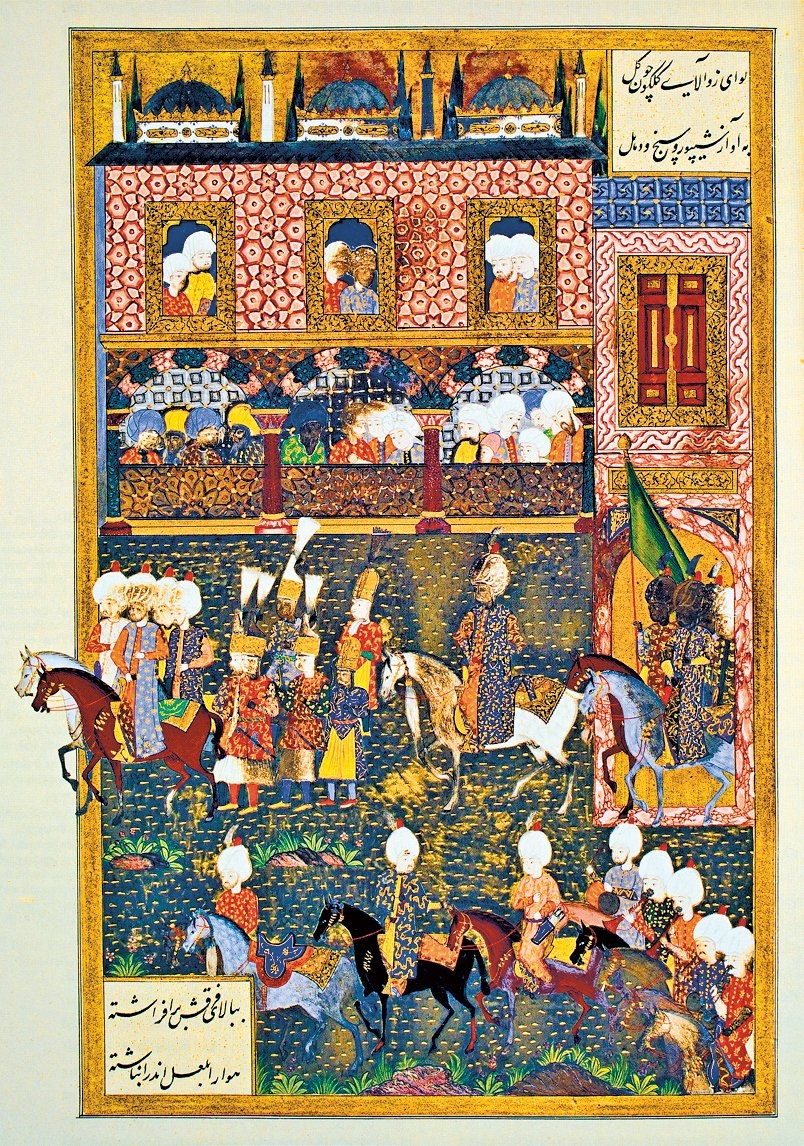 لوای زوالای گلگون چو گل
به آواز شیپور و سنج و دهل
ببالا فرقش برافراشته
هوا را بلعل اندر انباشته